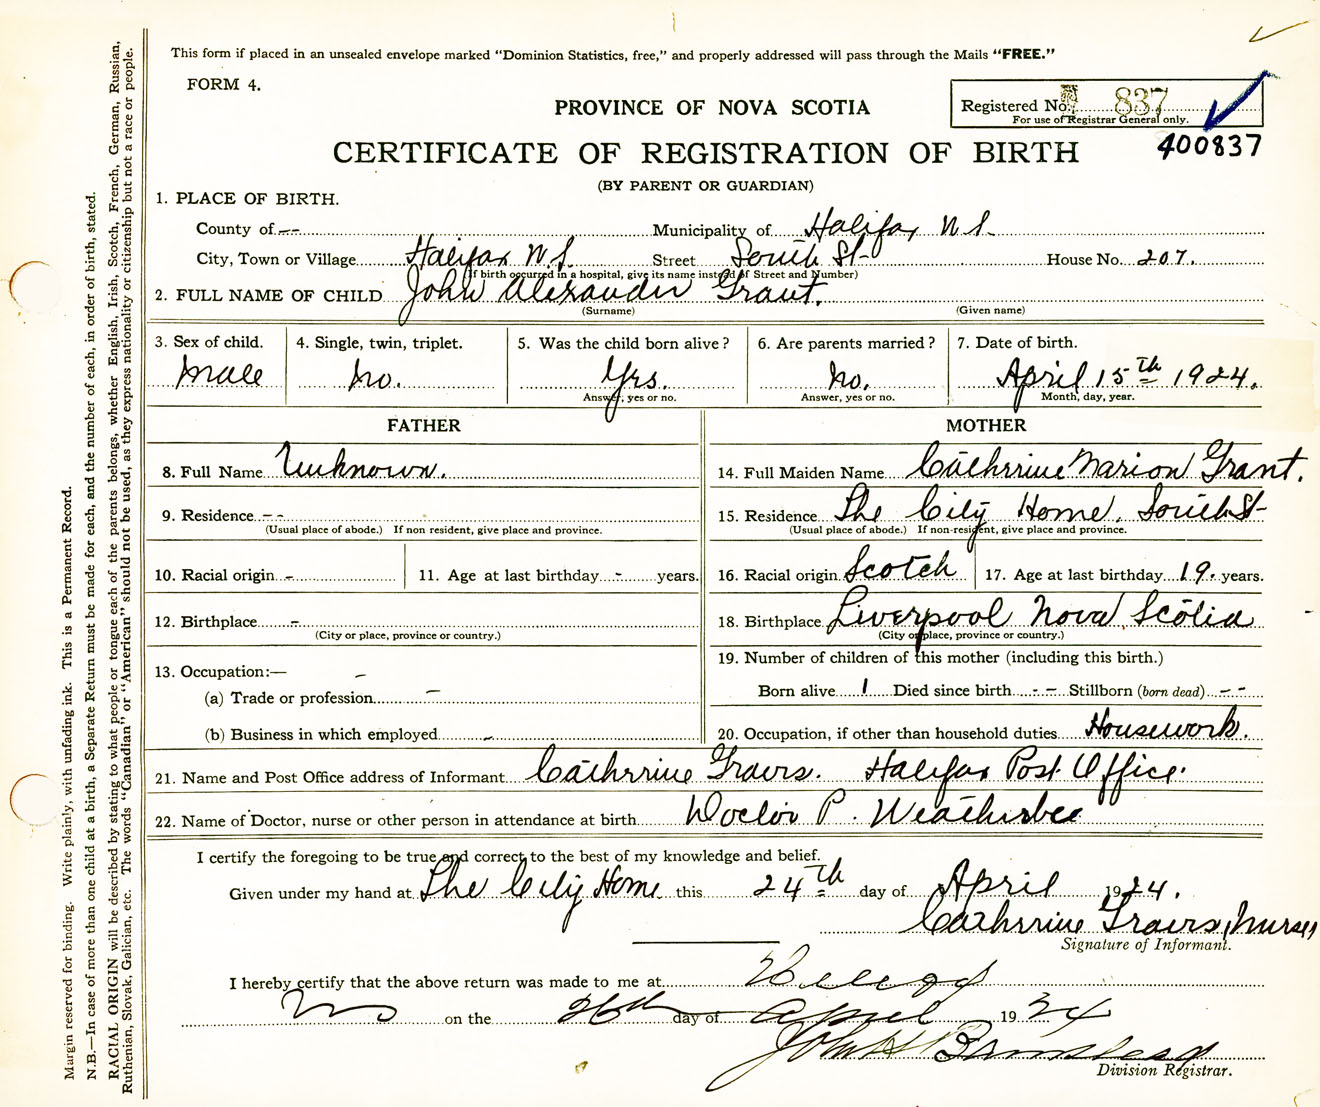 This form if placed in an unsealed envelope marked "Dominion Statistics, free," and properly addressed will pass through the Mails "FREE."
FORM 4.
PROVINCE OF NOVA SCOTIA
Registered No. 837
For use of Registrar General only.
400837
CERTIFICATE OF REGISTRATION OF BIRTH
(BY PARENT OR GUARDIAN)
1. PLACE OF BIRTH.
County of -- Municipality of Halifax N.S.
City, Town or Village Halifax N.S. Street South St- House No. 207.
(If birth occurred in a hospital, give its name instead of Street and Number)
2. FULL NAME OF CHILD John Alexander Grant.
(Surname) (Given name)
3. Sex of child. 4. Single, twin, triplet. 5. Was the child born alive? 6. Are parents married? 7. Date of birth.
Male No. Yes. No. April 15th 1924.
Answer, yes or no. Answer, yes or no. Month, day, year.
FATHER
8. Full Name Unknown.
9. Residence --
(Usual place of abode.) If non resident, give place and province.
10. Racial origin - 11. Age at last birthday - years.
12. Birthplace -
(City or place, province or country.)
13. Occupation:— -
(a) Trade or profession -
(b) Business in which employed -
MOTHER
14. Full Maiden Name Catherine Marion Grant.
15. Residence The City Home. South St-
(Usual place of abode.) If non-resident, give place and province.
16. Racial origin Scotch 17. Age at last birthday 19. years.
18. Birthplace Liverpool Nova Scotia
(City or place, province or country.)
19. Number of children of this mother (including this birth.)
Born alive 1 Died since birth -- Stillborn (born dead) --
20. Occupation, if other than household duties Housework.
21. Name and Post Office address of Informant Catherine Halifax Post Office.
22. Name of Doctor, nurse or other person in attendance at birth Doctor P. Weatherbee
I certify the foregoing to be true and correct to the best of my knowledge and belief.
Given under my hand at The City Home this 24th day of April 1924.
Catherine Nurse
Signature of Informant.
I hereby certify that the above return was made to me at
NS on the 26th day of April 1924
John H
Division Registrar.
Margin reserved for binding. Write plainly, with unfading ink. This is a Permanent Record.
N.B.—In case of more than one child at a birth, a Separate Return must be made for each, and the number of each, in order of birth, stated.
RACIAL ORIGIN will be described by stating to what people or tongue each of the parents belongs, whether English, Irish, Scotch, French, German, Russian,
Ruthenian, Slovak, Galician, etc. The words "Canadian" or "American" should not be used, as they express nationality or citizenship but not a race or people.